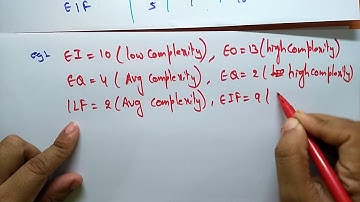 EIF 5
eg:- EI = 10 (low complexity), EO = 13 (high complexity)
EQ = 4 (Avg complexity), EQ = 2 (high complexity)
ILF = 2 (Avg complexity), EIF = 9 (